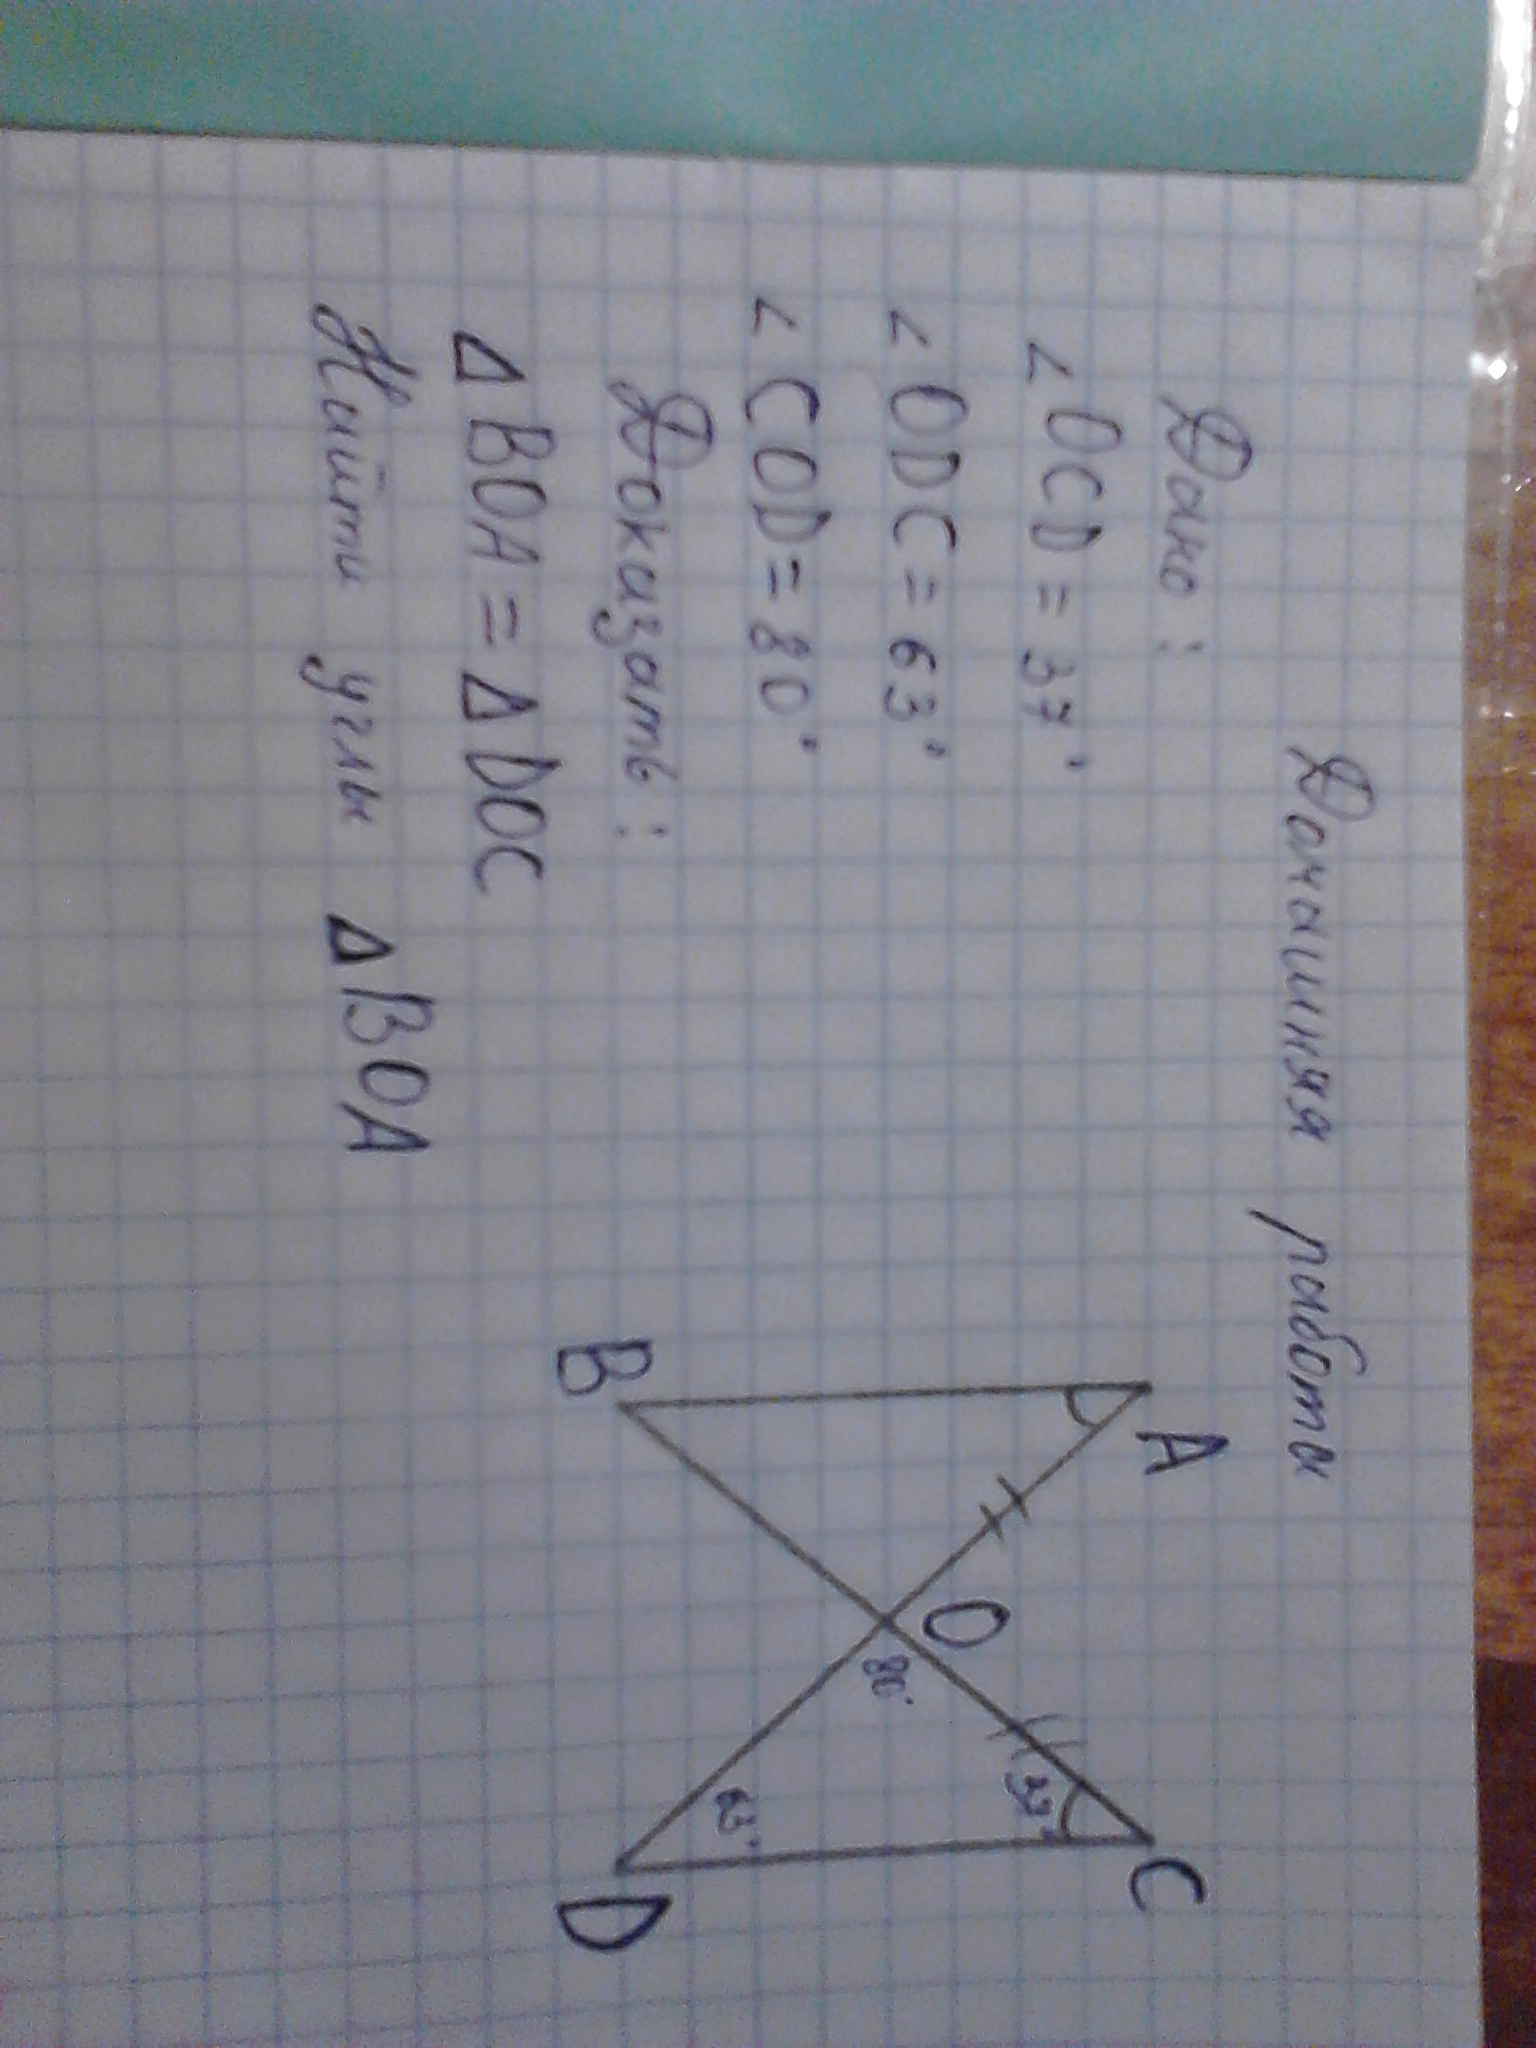 Домашняя работа
Дано:
∠OCD = 37°
∠ODC = 63°
∠COD = 80°
Доказать:
Δ BOA = Δ DOC
Найти углы Δ BOA
A
C
O
37°
80°
63°
B
D